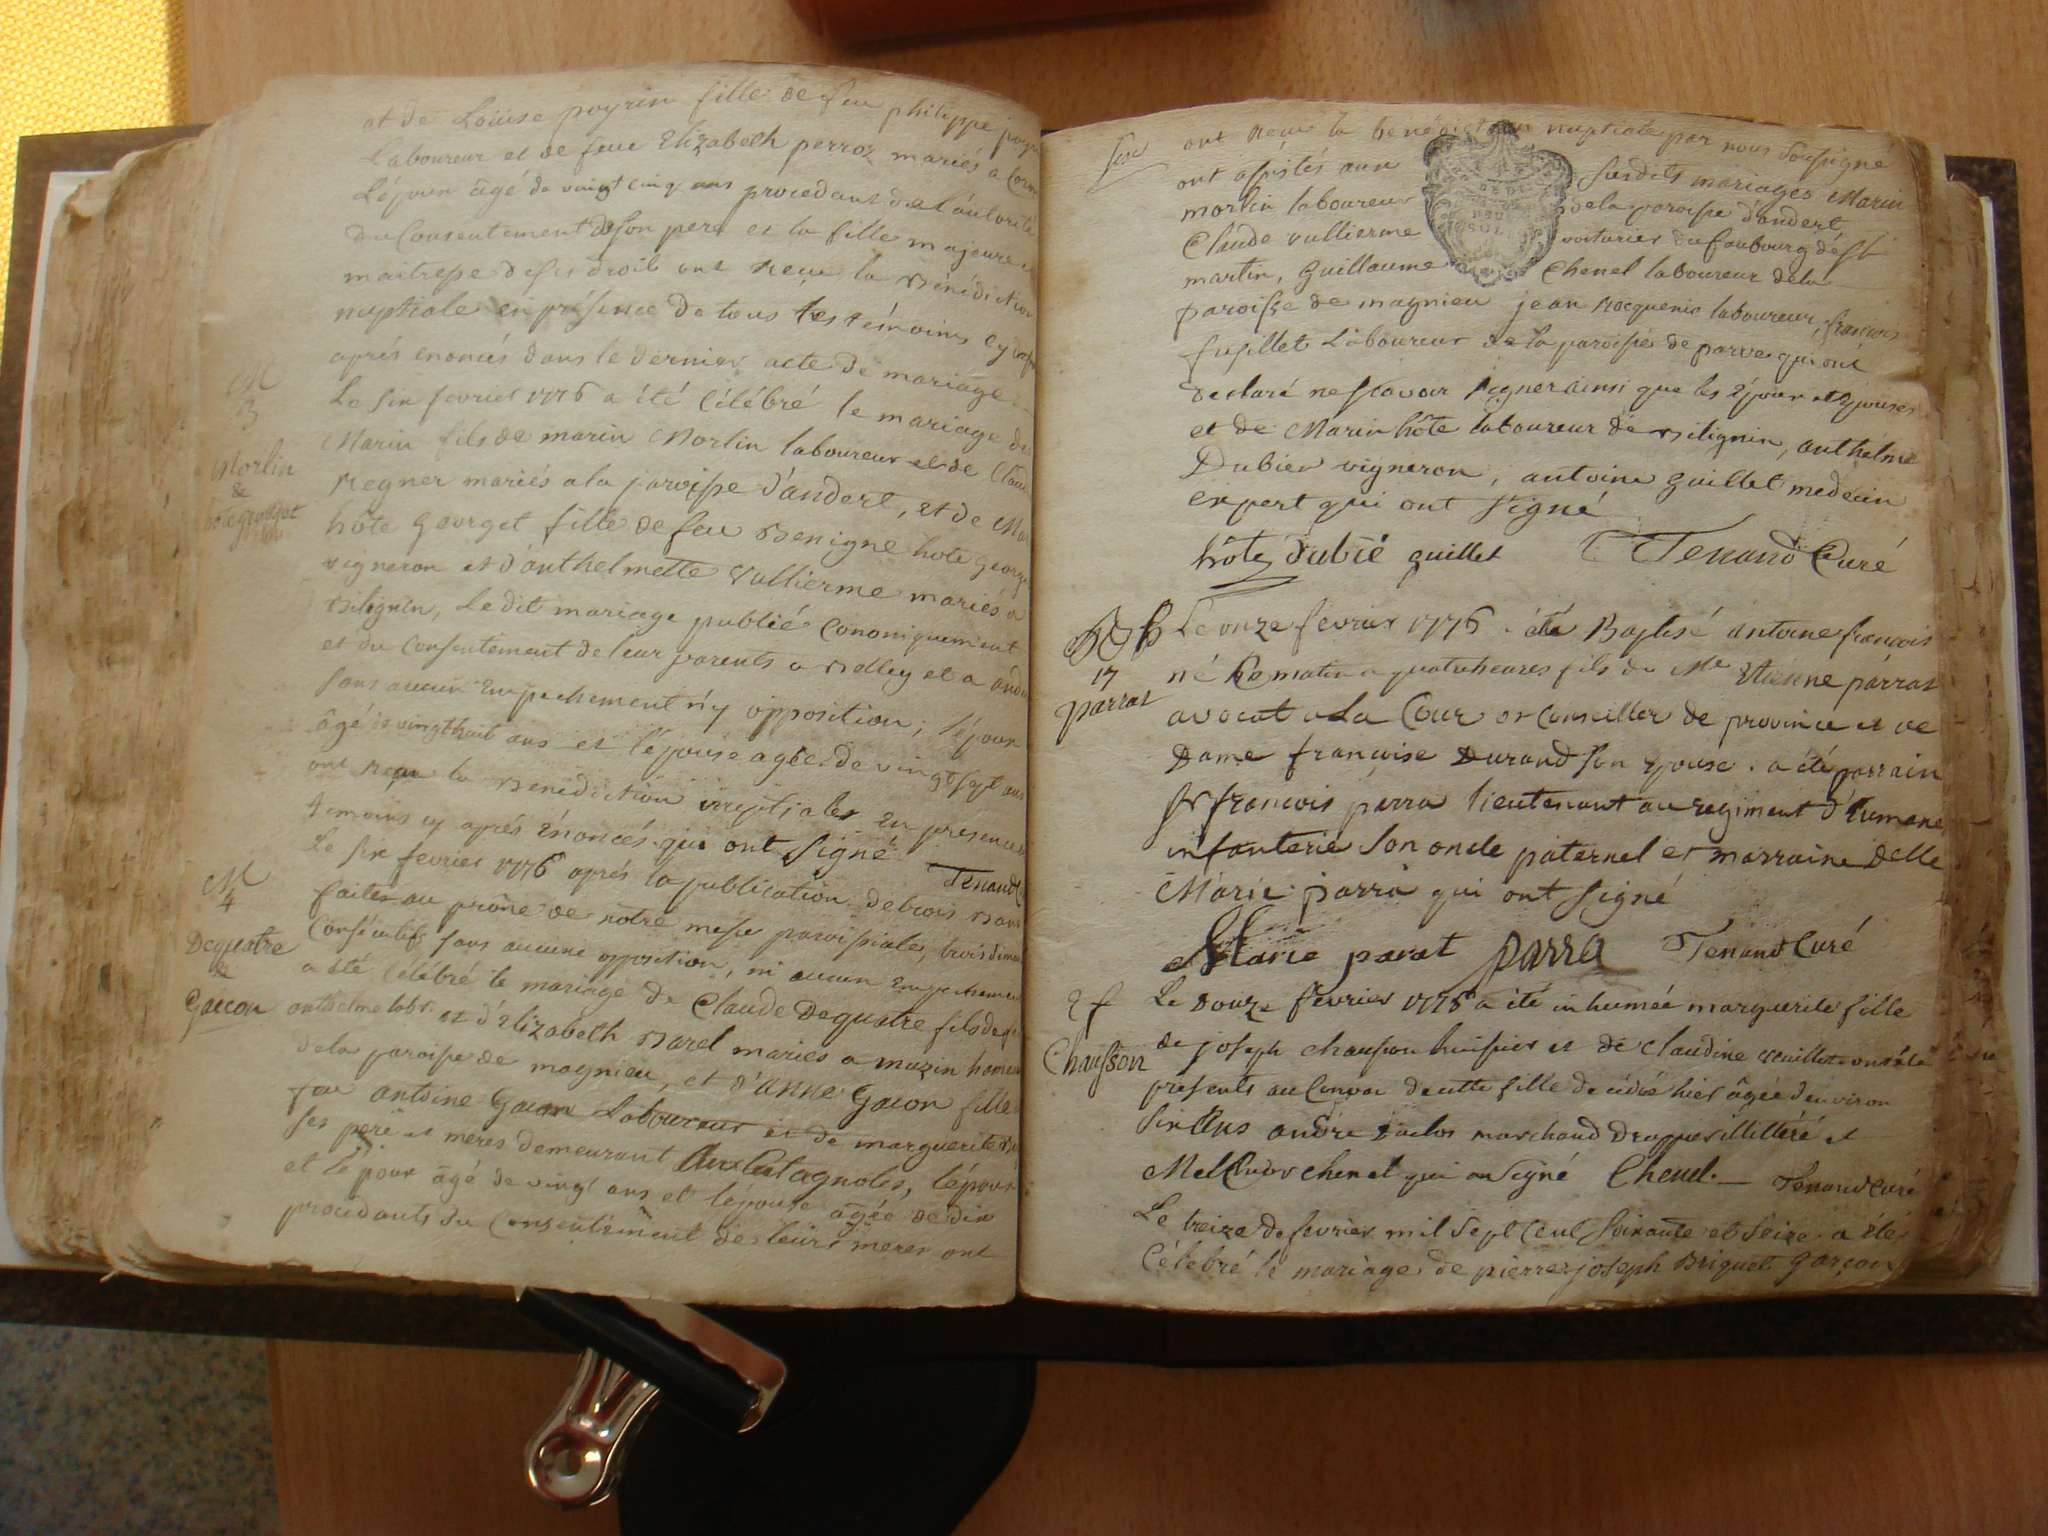 et de Loüise poyrin fille de feu philippe
Laboureur et de feue Elizabeth perroz mariés a
L'époux âgé de vingt cinq ans procedant de l'autorité
du Consentement de son pere et la fille majeure
maitresse de ses droit ont reçu la Bénédiction
nuptiale en présence de tous les témoins cy
aprés enoncés dans le dernier acte de mariage
M
3
Morlin
&
hote georget
Le six fevrier 1776 a été Célébré le mariage de
Marin fils de marin Morlin laboureur et de
Regner mariés a la paroisse d'andert, et de
hôte georget fille de feu Benigne hote
vigneron et d'anthelmette Vullierme mariés a
Bilignin, Ledit mariage publié Cononiquement
et du Consentement de leur parents a Belley et a
sans aucun Empechement n'y opposition, l'époux
âgé de vingt huit ans et l'épouse agée de vingt sept ans
ont reçu la Benediction nuptiales en presence
temoins cy aprés Enoncés qui ont signé Tenand
M
4
Dequatre
&
Gacon
Le six fevrier 1776 aprés la publication de trois Bans
faites au prône de nôtre messe paroissiales, trois
Consécutifs sans aucune opposition, ni aucun
a été Célébré le mariage de Claude Dequatre fils de
anthelme labr. et d'Elizabeth Barel mariés a muzin
de la paroisse de magnieu, et d'anne gacon fille
feu antoine gacon Laboureur et de marguerite
ses pere et meres demeurant Aux Catagnoles, l'époux
et l'époux âgé de vingt ans et l'épouse agée de dix
procedants du Consentement de leurs meres ont
ont reçu la bénédiction nuptiale par nous Soussigné
ont assistés aux susdits mariages Marin
morlin laboureur de la paroisse d'andert
Claude vullierme voiturier du faubourg de st
martin, guillaume Chenel laboureur de la
paroisse de magnieu jean Rocquenie laboureur, francois
fusillet Laboureur de la paroisse de parve qui ont
declaré ne scavoir signer ainsi que les Epoux et Epouses
et de Marin hôte laboureur de Bilignin, anthelme
Dubier vigneron, antoine guillet medecin
expert qui ont signé
hôte Dubié guillet Tenand Curé
17
parrat
Le onze fevrier 1776. été Baptisé antoine francois
né Ce matin a quatre heures fils de Me Etienne parrat
avocat a La Cour et Conseiller de province et de
Dame françoise Durand son Epouse. a été parrain
sr francois parra lieutenant au regiment d'
infanterie son oncle paternel et marraine Delle
Marie parra qui ont signé
Marie parat parra Tenand Curé
Chausson
Le Douze fevrier 1776 a été inhumée marguerite fille
de joseph chausson huissier et de Claudine ont été
presents au Convoi de cette fille decédée hier âgée d'environ
six Ans andré marchand Drappier illitéré et
Melchior chenel qui a signé Chenel. Tenand Curé
Le treize de fevrier mil sept Cent soixante et seize a été
Célébré le mariage de pierre joseph Briquet garçon